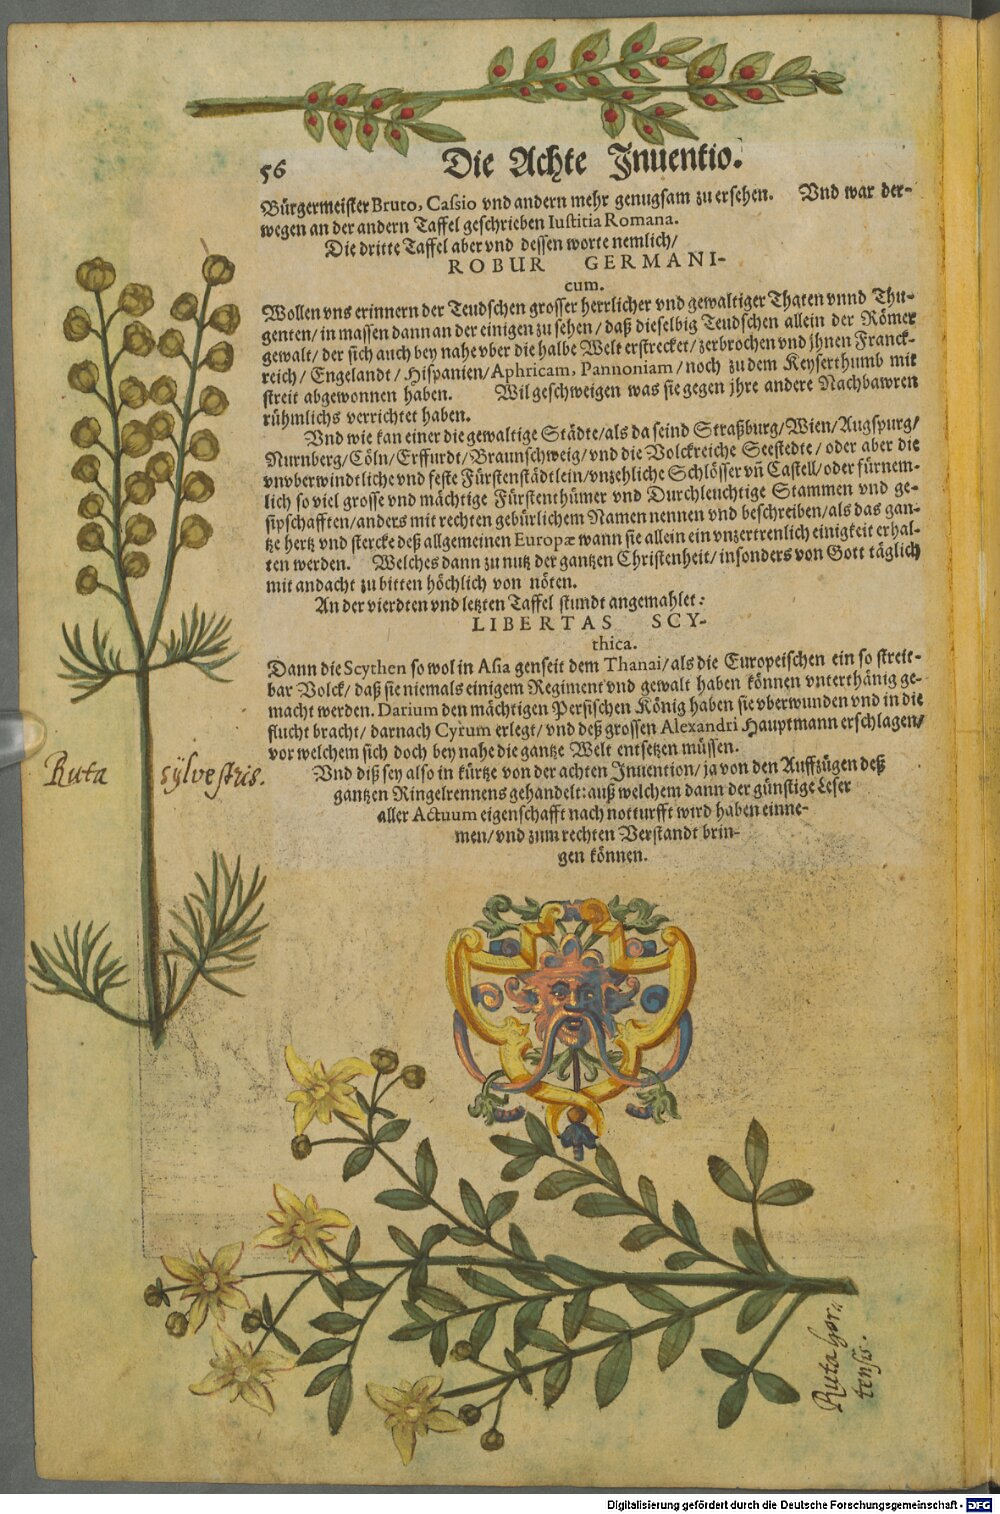 56
Die Achte Inuentio.
Bürgermeister Bruto, Cassio vnd andern mehr genugsam zu ersehen. Vnd war der-
wegen an der andern Taffel geschrieben Iustitia Romana.
Die dritte Taffel aber vnd dessen worte nemlich/
ROBUR GERMANI-
cum.
Wollen vns erinnern der Teudschen grosser herrlicher vnd gewaltiger Thaten vnnd Thu-
genten/ in massen dann an der einigen zu sehen/ daß dieselbig Teudschen allein der Römer
gewalt/ der sich auch bey nahe vber die halbe Welt erstrecket/ zerbrochen vnd jhnen Franck-
reich/ Engelandt/ Hispanien/ Aphricam, Pannoniam/ noch zu dem Keyserthumb mit
streit abgewonnen haben. Wil geschweigen was sie gegen jhre andere Nachbawren
rühmlichs verrichtet haben.
Vnd wie kan einer die gewaltige Städte/ als da seind Straßburg/ Wien/ Augspurg/
Nurnberg/ Cöln/ Erffurdt/ Braunschweig/ vnd die Volckreiche Seestedte/ oder aber die
vnvberwindtliche vnd feste Fürstenstädtlein/ vnzehliche Schlösser vñ Castell/ oder fürnem-
lich so viel grosse vnd mächtige Fürstenthümer vnd Durchleuchtige Stammen vnd ge-
sipschafften/ anders mit rechten gebürlichem Namen nennen vnd beschreiben/ als das gan-
tze hertz vnd stercke deß allgemeinen Europæ wann sie allein ein vnzertrenlich einigkeit erhal-
ten werden. Welches dann zu nutz der gantzen Christenheit/ insonders von Gott täglich
mit andacht zu bitten höchlich von nöten.
An der vierdten vnd letzten Taffel stundt angemahlet:
LIBERTAS SCY-
thica.
Dann die Scythen so wol in Asia genseit dem Thanai/ als die Europeischen ein so streit-
bar Volck/ daß sie niemals einigem Regiment vnd gewalt haben können vnterthänig ge-
macht werden. Darium den mächtigen Persischen König haben sie vberwunden vnd in die
flucht bracht/ darnach Cyrum erlegt/ vnd deß grossen Alexandri Hauptmann erschlagen/
vor welchem sich doch bey nahe die gantze Welt entsetzen müssen.
Vnd diß sey also in kürtze von der achten Inuention/ ja von den Auffzügen deß
gantzen Ringelrennens gehandelt: auß welchem dann der günstige Leser
aller Actuum eigenschafft nach notturfft wird haben einne-
men/ vnd zum rechten Verstandt brin-
gen können.
Ruta sÿlvestris.
Ruta hor-
tensis.
Digitalisierung gefördert durch die Deutsche Forschungsgemeinschaft - DFG